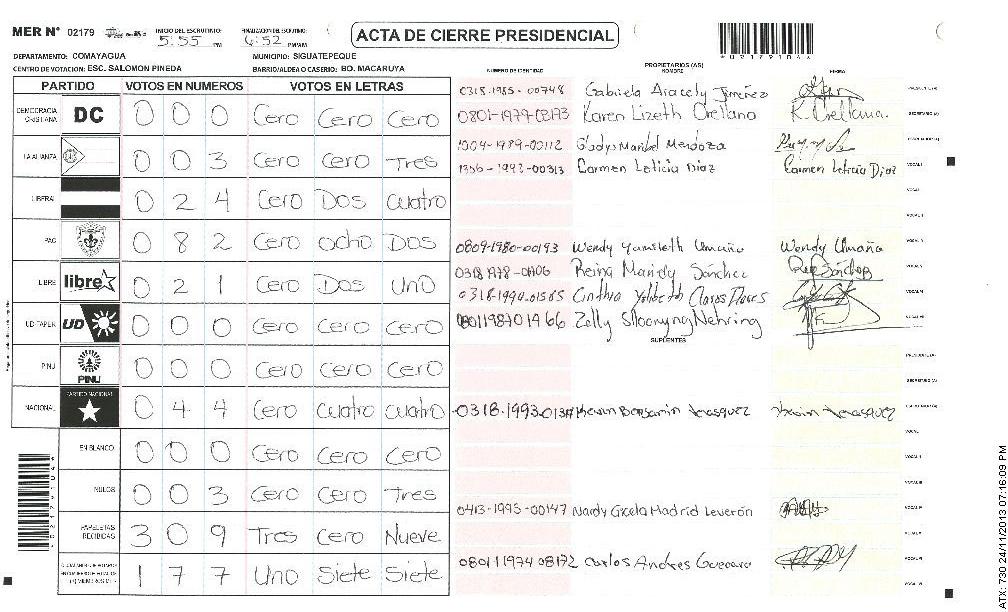 MER N° 02179 INICIO DEL ESCRUTINIO: 5:55 PM FINALIZACION DEL ESCRUTINIO: 6:52 PM/AM ACTA DE CIERRE PRESIDENCIAL
DEPARTAMENTO: COMAYAGUA MUNICIPIO: SIGUATEPEQUE
CENTRO DE VOTACION: ESC. SALOMON PINEDA BARRIO/ALDEA O CASERIO: BO. MACARUYA
PARTIDO VOTOS EN NUMEROS VOTOS EN LETRAS
NUMERO DE IDENTIDAD PROPIETARIOS (AS) NOMBRE FIRMA
DEMOCRACIA CRISTIANA DC 0 0 0 Cero Cero Cero
LA ALIANZA 0 0 3 Cero Cero Tres
LIBERAL 0 2 4 Cero Dos Cuatro
PAC 0 8 2 Cero Ocho Dos
LIBRE libre 0 2 1 Cero Dos Uno
UD-FAPER UD 0 0 0 Cero Cero Cero
PINU PINU 0 0 0 Cero Cero Cero
NACIONAL PARTIDO NACIONAL 0 4 4 Cero Cuatro Cuatro
EN BLANCO 0 0 0 Cero Cero Cero
NULOS 0 0 3 Cero Cero Tres
PAPELETAS RECIBIDAS 3 0 9 Tres Cero Nueve
1 7 7 Uno Siete Siete
0318-1985-00748 Gabriela Aracely Jiménez
0801-1979-03173 Karen Lizeth Orellano K. Orellana.
1004-1989-00112 Gladys Maribel Mendoza
1356-1992-00313 Carmen Leticia Diaz Carmen Leticia Diaz
0809-1980-00193 Wendy Yamileth Umaña Wendy Umaña
Reina Mariely Sánchez
0318-1990-01565 Cinthia
0801198701966 Zelly Nehring
SUPLENTES
0318-1993- Kevin Benjamin Velasquez Kevin Velasquez
0413-1995-00147 Nardy Gicela Madrid Leverón
0801197408172 Carlos Andres Guevara
ATX: 730 24/11/2013 07:16:09 PM